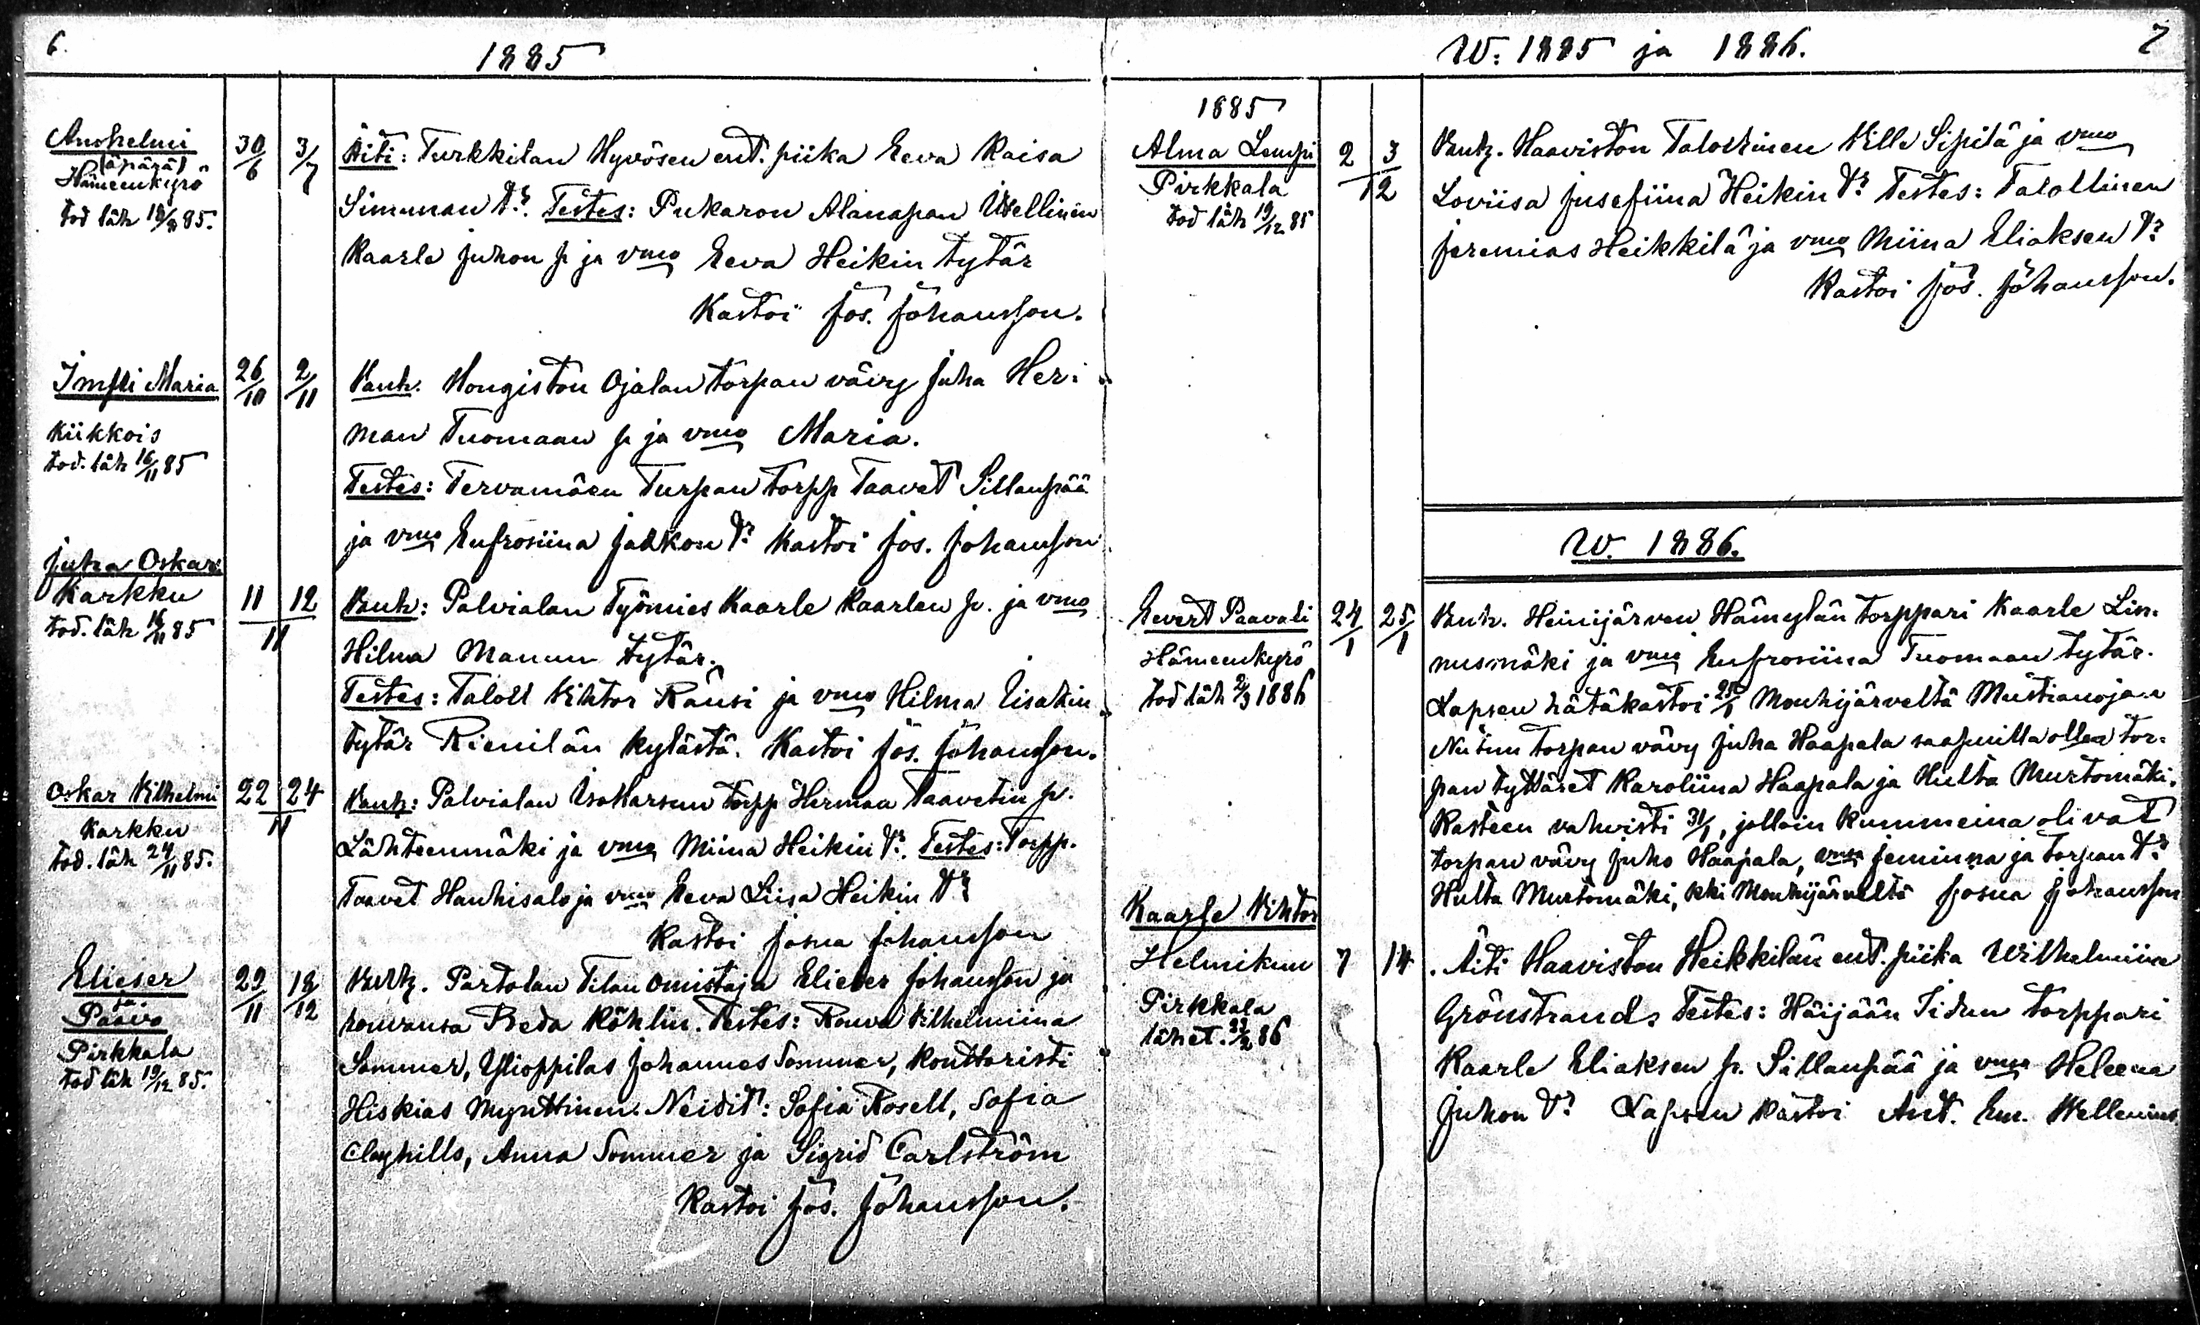 6.
1885
Anshelmi
(äpärä)
Hämeenkyrö
tod läh 18/8 85.
30/6
3/7
Äiti: Turkkilan Hyvösen ent. piika Eeva Kaisa
Simunan tr. Testes: Pukaron Alanapan Itsellinen
Kaarle Juhon p ja vmo Eeva Heikin tytär
Kastoi Jos. Johansson.
Impi Maria
Kiikkois
tod. läh 16/11 85
26/10
2/11
Vanh. Hongiston Ojalan torpan vävy Juha Her-
man Tuomaan p ja vmo Maria.
Testes: Tervamäen Turpan torpp Taavet Sillanpää
ja vmo Eufrosiina Jaakon tr Kastoi Jos. Johansson
Juha Oskar
Karkku
tod. läh 16/11 85
11 12
11
Vanh: Palvialan Työmies Kaarle Kaarlen p. ja vmo
Hilma Manun tytär.
Testes: Taloll Vihtor Räusi ja vmo Hilma Iisakin
tytär Rienilän kylästä. Kastoi Jos. Johansson.
Oskar Vilhelmi
Karkku
tod. läh 24/11 85.
22 24
11
Vanh: Palvialan Isokarsun torpp Herman Taavetin p.
Lähteenmäki ja vmo Miina Heikin tr. Testes: Torpp.
Taavet Hanhisalo ja vmo Eeva Liisa Heikin tr
Kastoi Josua Johansson
Elieser
ja
Paavo
Pirkkala
tod läh 19/12 85.
29/11
18/12
Vanh. Partolan Tilan omistaja Elieser Johansson ja
rouvansa Beda Köhlin. Testes: Rouva Vilhelmiina
Sommer, Ylioppilas Johannes Sommer, Konttoristi
Hiskias Mynttinen. Neidit: Sofia Rosell, Sofia
Clayhills, Anna Sommer ja Sigrid Carlström
Kastoi Jos. Johansson.
W: 1885 ja 1886.
7
1885
Alma Lempi
Pirkkala
tod läh 19/12 85
2 3
12
Vanh. Haaviston Talollinen Ville Sipilä ja vmo
Loviisa Jusefiina Heikin tr Testes: Talollinen
Jeremias Heikkilä ja vmo Miina Eliaksen tr
Kastoi Jos. Johansson.
W. 1886.
Evert Paavali
Hämeenkyrö
tod läh 2/3 1886
24/1
25/1
Vanh. Heinijärven Hämeylän torppari Kaarle Lin-
nusmäki ja vmo Eufrosiina Tuomaan tytär.
Lapsen hätäkastoi 25/1 Mouhijärveltä Mustianojan
torpan vävy Juha Haapala saapuilla ollen tor-
pan tyttäret Karoliina Haapala ja Hulta Murtomäki.
Kasteen vahvisti 31/1, jolloin kummeina olivat
torpan vävy Juho Haapala, vmo Jemiina ja torpan tr
Hulta Murtomäki, kki Mouhijärveltä Josua Johansson
Kaarle Vihtor
Helmikuu
Pirkkala
lähet. 23/2 86
7 14
Äiti Haaviston Heikkilän ent. piika Wilhelmiina
Grönstrand. Testes: Häijään Iidun torppari
Kaarle Eliaksen p. Sillanpää ja vmo Heleena
Juhon tr Lapsen kastoi Ant. Em. Wellenius.